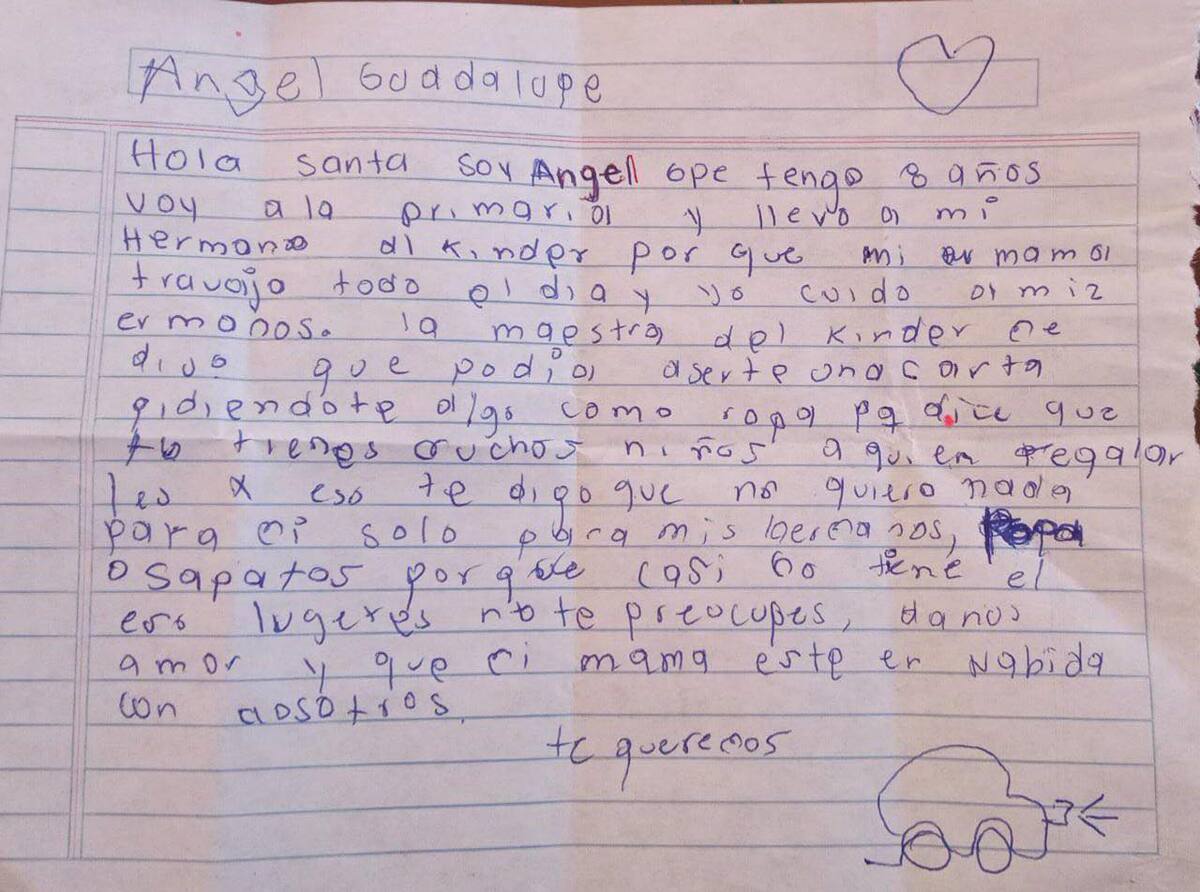 Angel Guadalupe
Hola santa soy Angel Gpe tengo 8 años
voy a la primaria y llevo a mi
Hermano al kinder por que mi mama
travaja todo el dia y yo cuido a miz
ermanos. la maestra del kinder me
dijo que podia aserte una carta
pidiendote algo como ropa pq dice que
tu tienes muchos niños a quien regalar
les x eso te digo que no quiero nada
para mi solo para mis hermanos, Ropa
o sapatos porque casi no tiene el
ero lugeres no te preocupes, danos
amor y que mi mama este en Nabida
con nosotros.
te queremos